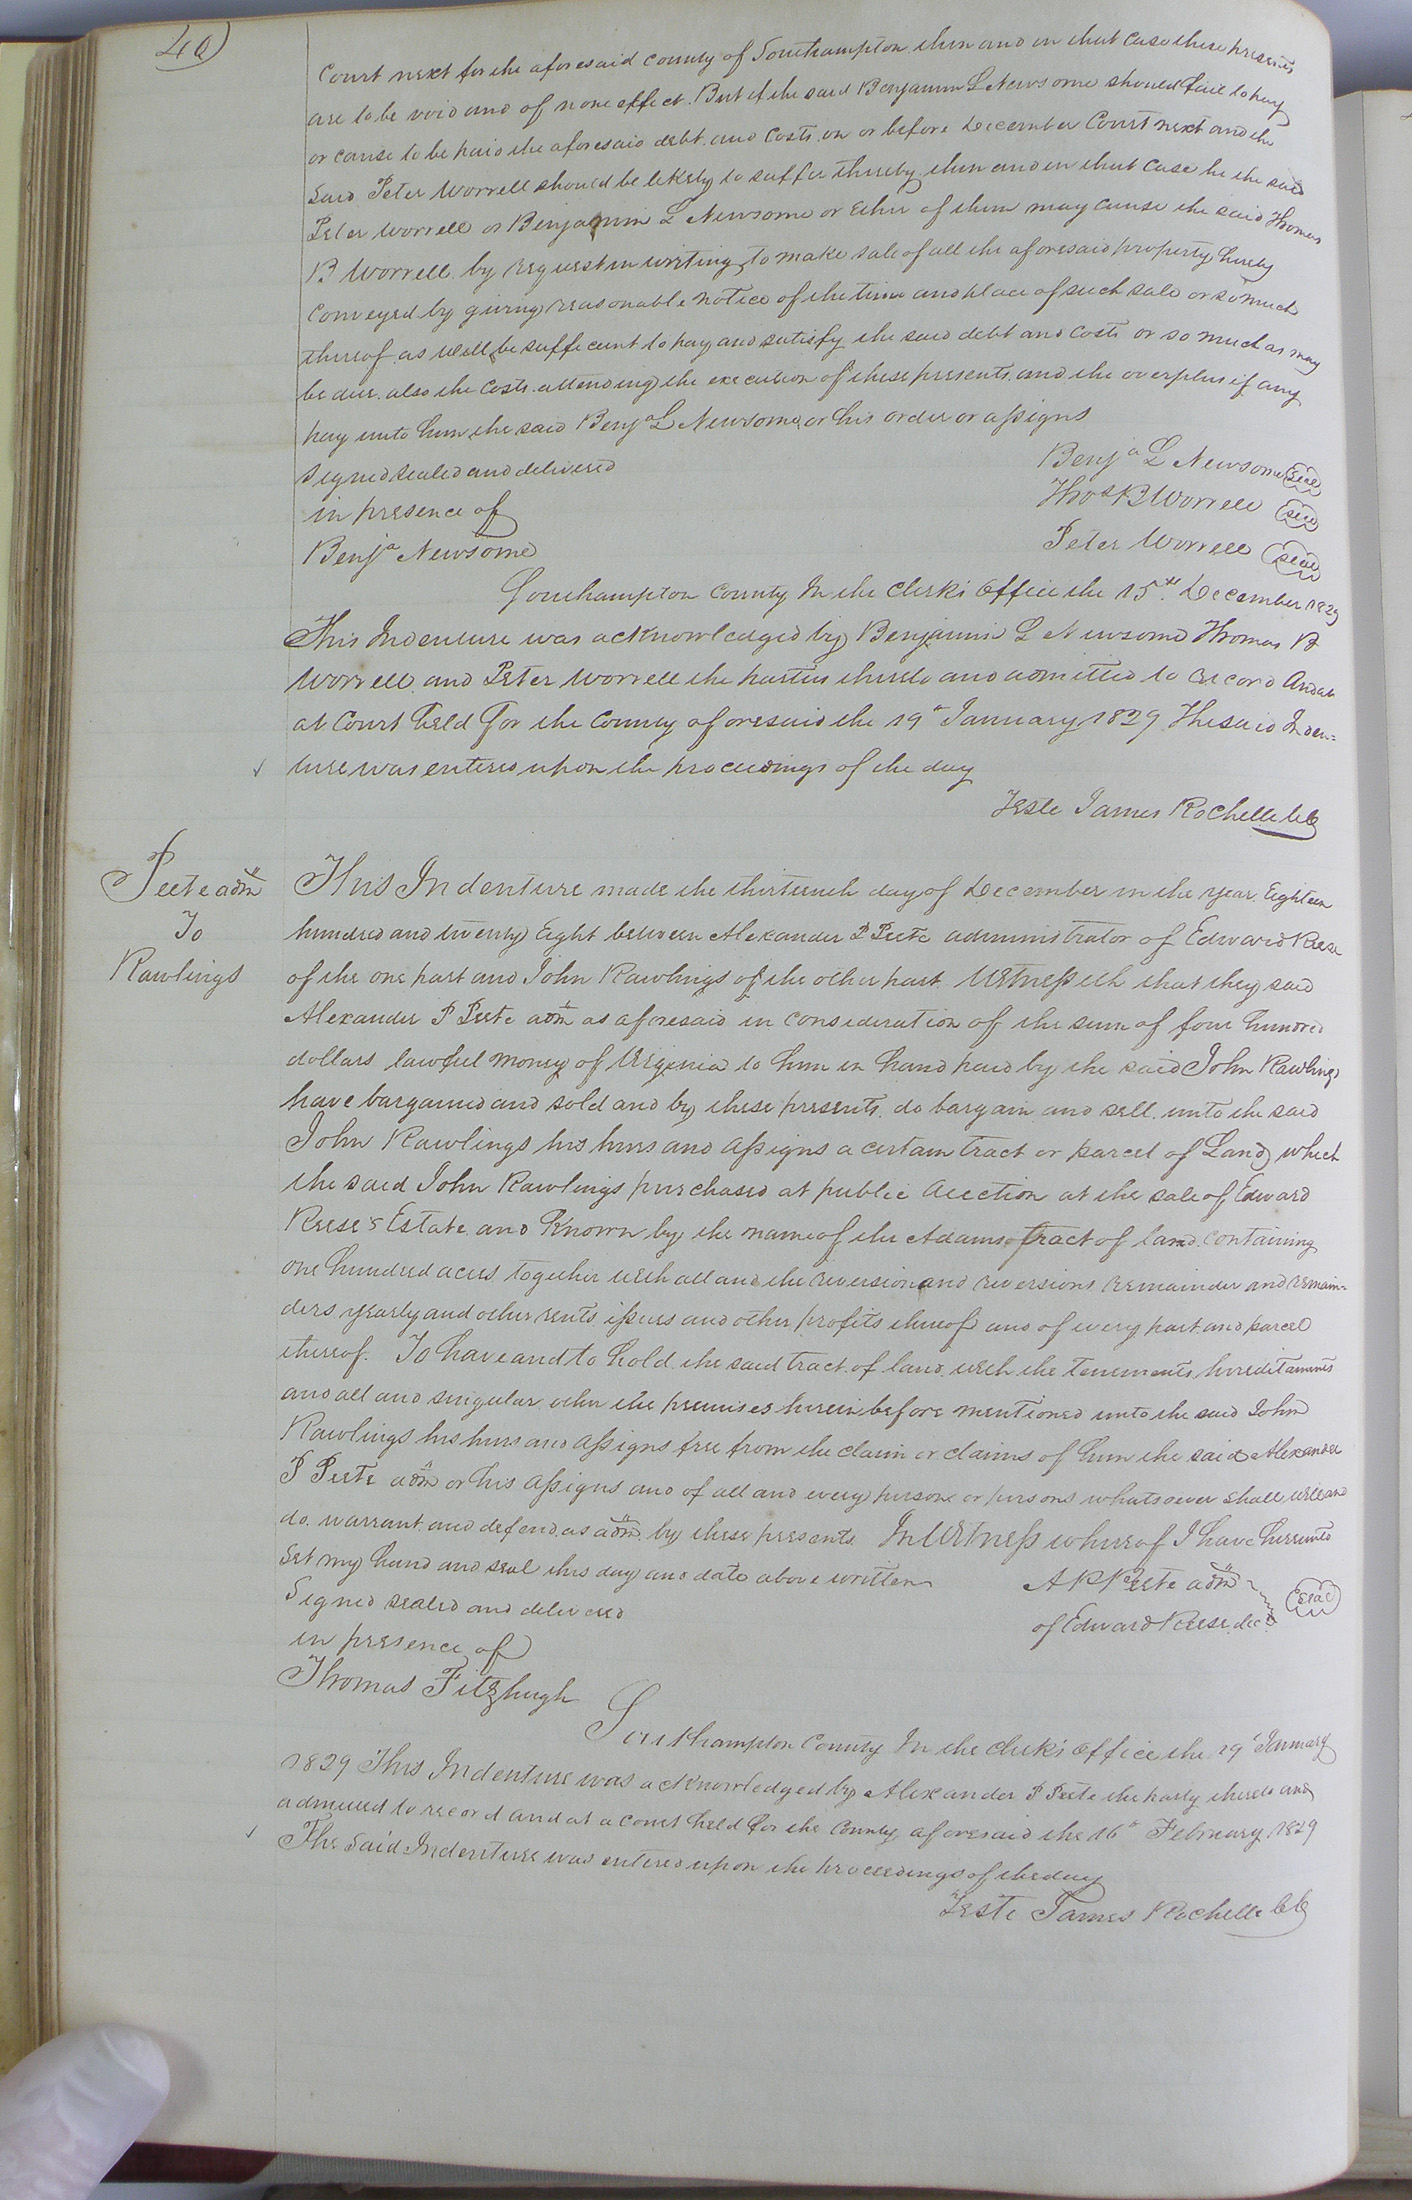 40
Court next for the aforesaid county of Southampton then and in that case these presents
are to be void and of none effect. But if the said Benjamin L Newsome should fail to pay
or cause to be paid the aforesaid debt and costs on or before December Court next and the
said Peter Worrell should be likely to suffer thereby then and in that case he the said
Peter Worrell or Benjamin L Newsome or Either of them may cause the said Thomas
B Worrell by request in writing to make sale of all the aforesaid property hereby
Conveyed by giving reasonable notice of the time and place of such sale or so much
thereof as will be sufficient to pay and satisfy the said debt and costs or so much as may
be due also the costs attending the execution of these presents and the overplus if any
pay unto him the said Benja L Newsome or his order or assigns
Signed sealed and delivered
in presence of
Benja Newsome
Benja L Newsome seal
Thos B Worrell seal
Peter Worrell seal
Southampton County In the Clerks Office the 15th December 1829
This Indenture was acknowledged by Benjamin L Newsome Thomas B
Worrell and Peter Worrell the parties thereto and admitted to record And at
at Court held for the County aforesaid the 19th January 1829 The said Inden=
ture was entered upon the proceedings of the day
Teste James Rochelle CC
Peete adm
To
Rawlings
This Indenture made the thirteenth day of December in the year Eighteen
hundred and twenty Eight between Alexander P Peete administrator of Edward Reese
of the one part and John Rawlings of the other part Witnesseth that they said
Alexander P Peete adm as aforesaid in consideration of the sum of four hundred
dollars lawful money of Virginia to him in hand paid by the said John Rawlings
have bargained and sold and by these presents do bargain and sell unto the said
John Rawlings his heirs and assigns a certain tract or parcel of Land which
the said John Rawlings purchased at public Auction at the sale of Edward
Reese's Estate and Known by the name of the Adams tract of land containing
one hundred acres together with all and the reversion and reversions remainder and remain=
ders yearly and other rents issues and other profits thereof and of every part and parcel
thereof. To have and to hold the said tract of land with the tenements hereditaments
and all and singular other the premises herein before mentioned unto the said John
Rawlings his heirs and assigns free from the claim or claims of him the said Alexander
P Peete adm or his assigns and of all and every person or persons whatsoever shall will and
do warrant and defend as adm by these presents In Witness whereof I have hereunto
Set my hand and seal this day and date above written
Signed sealed and delivered
in presence of
Thomas Fitzhugh
A P Peete adm
of Edward Reese dec
seal
Southampton County In the Clerk's office the 19th January
1829 This Indenture was acknowledged by Alexander P Peete the party thereto and
admitted to record and at a court held for the County aforesaid the 16th February 1829
The Said Indenture was entered upon the proceedings of the day
Teste James Rochelle CC